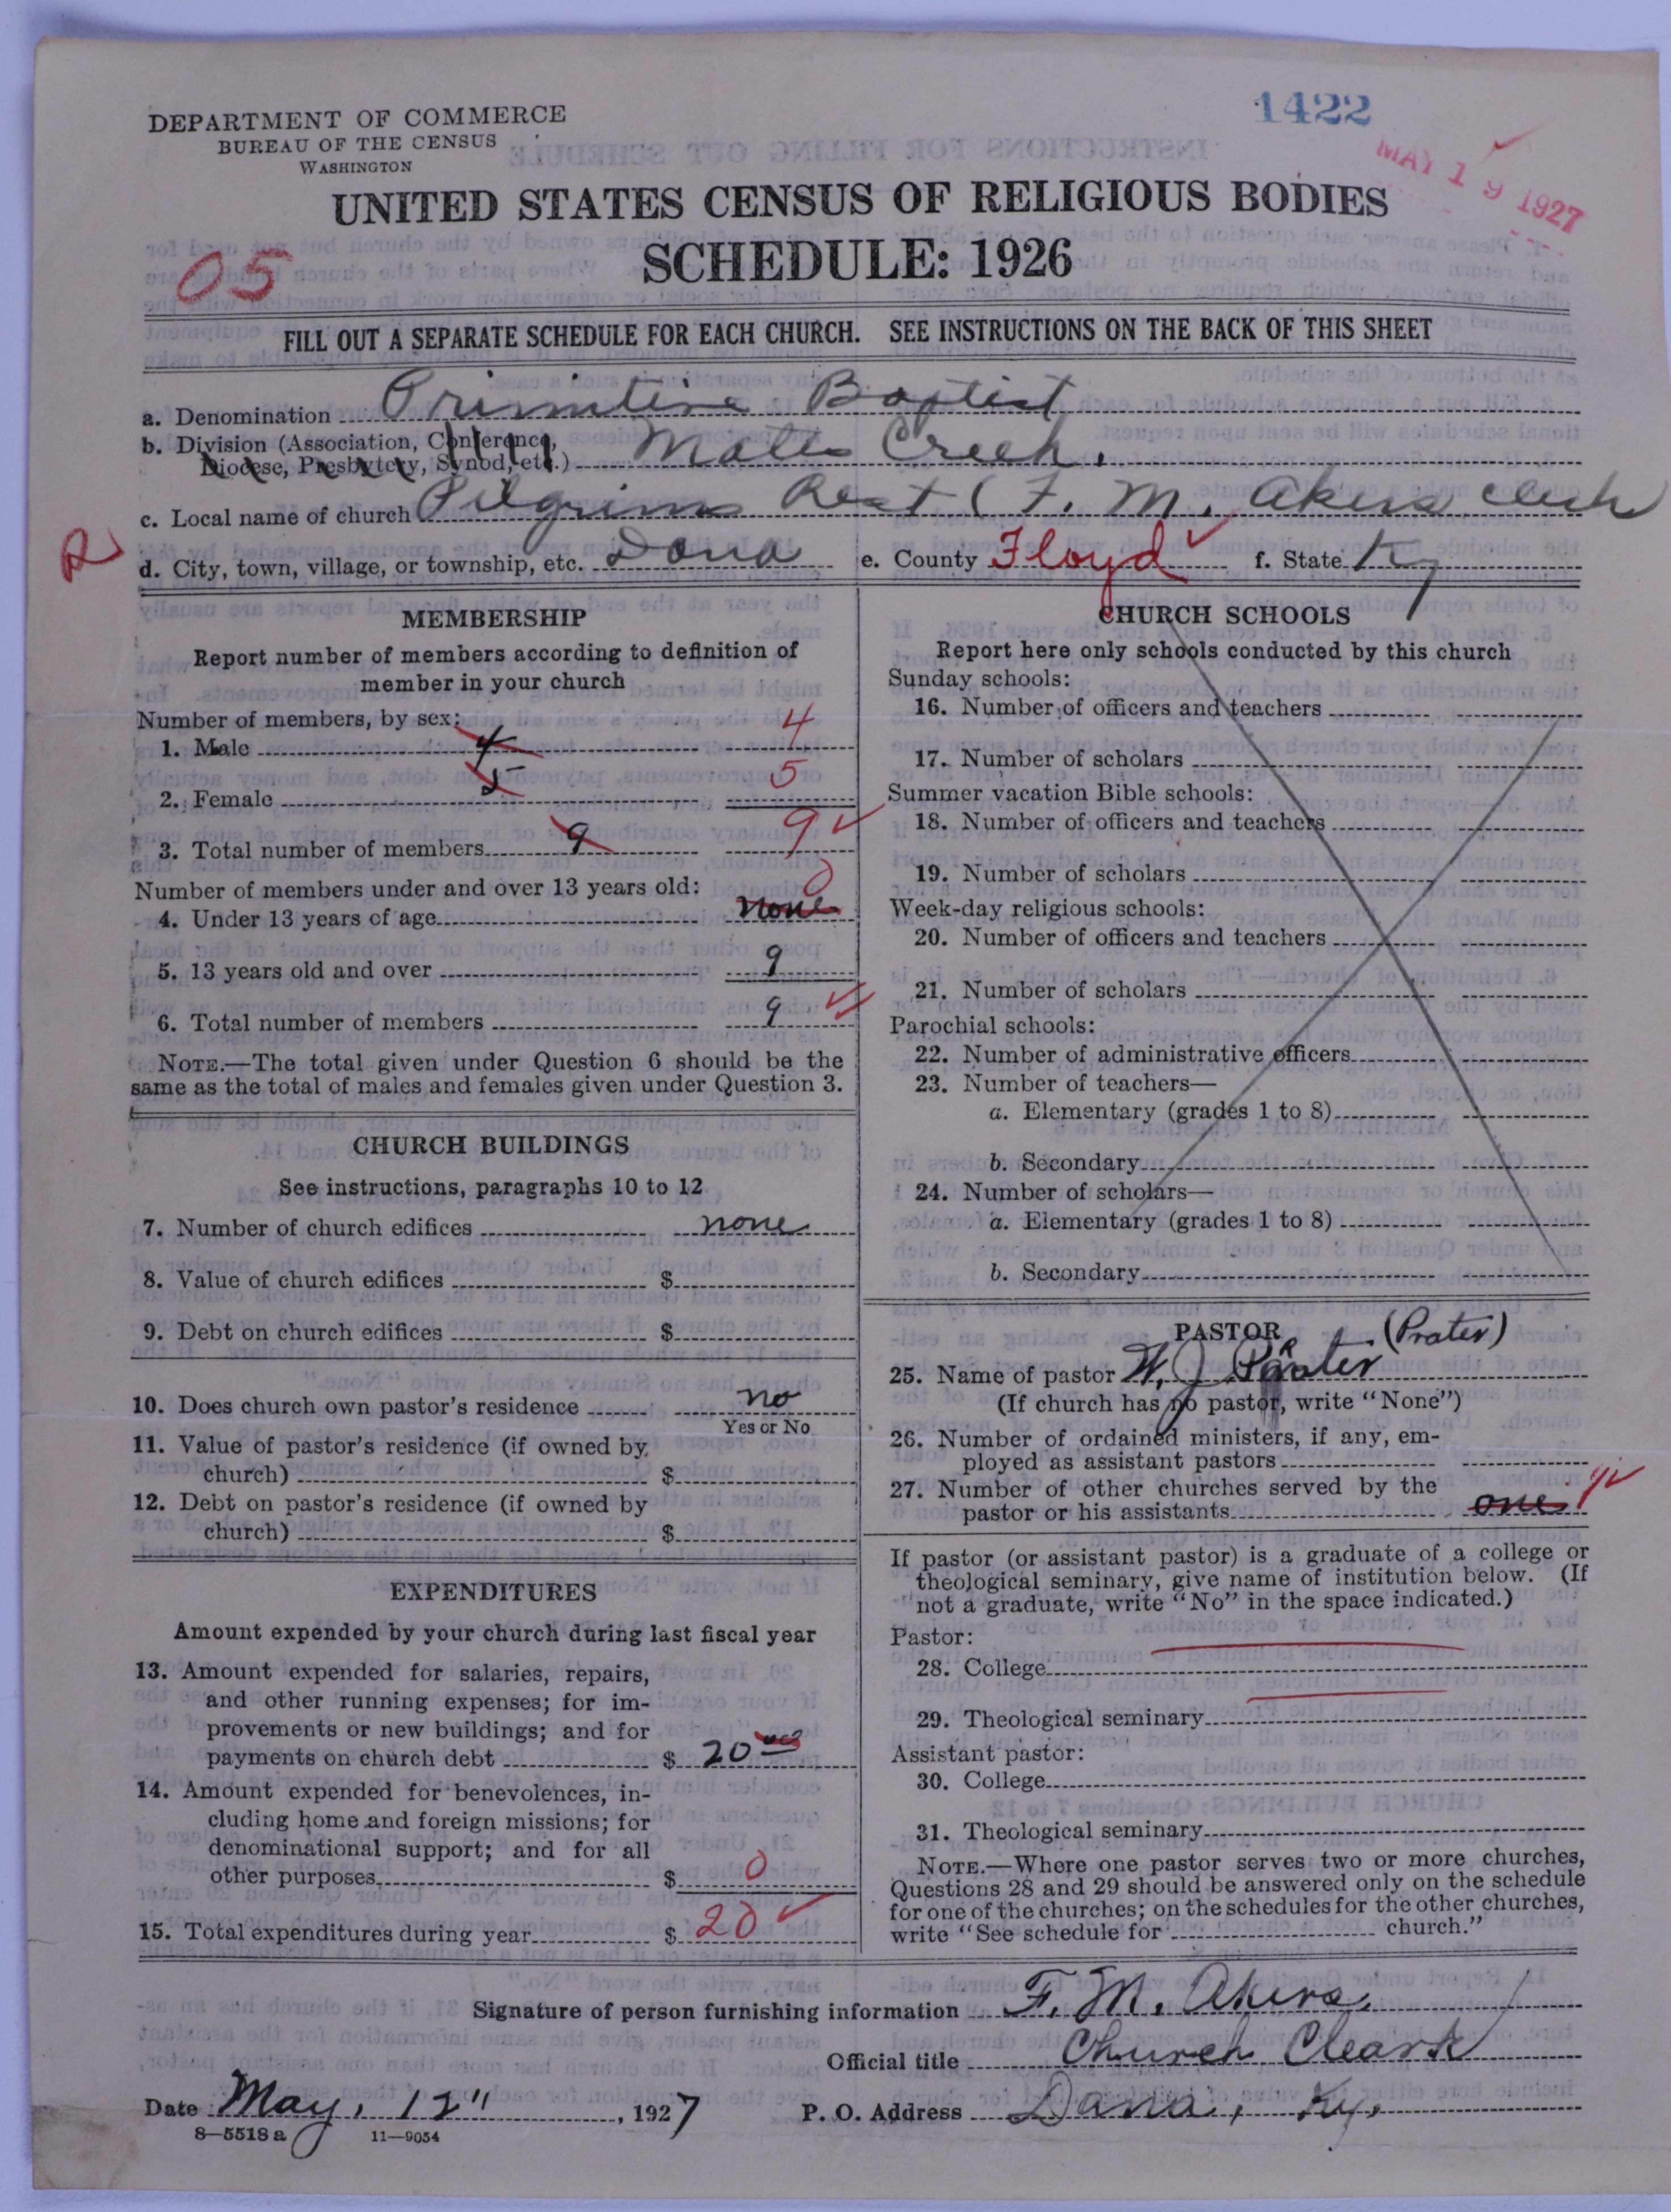 1422
MAY 19 1927
DEPARTMENT OF COMMERCE
BUREAU OF THE CENSUS
WASHINGTON
UNITED STATES CENSUS OF RELIGIOUS BODIES
SCHEDULE: 1926
05
FILL OUT A SEPARATE SCHEDULE FOR EACH CHURCH. SEE INSTRUCTIONS ON THE BACK OF THIS SHEET
a. Denomination Primitive Baptist
b. Division (Association, Conference, Diocese, Presbytery, Synod, etc.) Mates Creek.
c. Local name of church Pilgrims Rest (F. M. Akers
R
d. City, town, village, or township, etc. Dana e. County Floyd f. State Ky
MEMBERSHIP
Report number of members according to definition of
member in your church
Number of members, by sex:
1. Male 4 4
2. Female 5 5
3. Total number of members 9 9
Number of members under and over 13 years old: 0
4. Under 13 years of age none
5. 13 years old and over 9
6. Total number of members 9
NOTE.—The total given under Question 6 should be the
same as the total of males and females given under Question 3.
CHURCH BUILDINGS
See instructions, paragraphs 10 to 12
7. Number of church edifices none
8. Value of church edifices $
9. Debt on church edifices $
10. Does church own pastor's residence no
Yes or No
11. Value of pastor's residence (if owned by
church) $
12. Debt on pastor's residence (if owned by
church) $
EXPENDITURES
Amount expended by your church during last fiscal year
13. Amount expended for salaries, repairs,
and other running expenses; for im-
provements or new buildings; and for
payments on church debt $ 20 00
14. Amount expended for benevolences, in-
cluding home and foreign missions; for
denominational support; and for all
other purposes $ 0
15. Total expenditures during year $ 20
CHURCH SCHOOLS
Report here only schools conducted by this church
Sunday schools:
16. Number of officers and teachers
17. Number of scholars
Summer vacation Bible schools:
18. Number of officers and teachers
19. Number of scholars
Week-day religious schools:
20. Number of officers and teachers
21. Number of scholars
Parochial schools:
22. Number of administrative officers
23. Number of teachers—
a. Elementary (grades 1 to 8)
b. Secondary
24. Number of scholars—
a. Elementary (grades 1 to 8)
b. Secondary
PASTOR (Prater)
25. Name of pastor W. J. Prater
(If church has no pastor, write "None")
26. Number of ordained ministers, if any, em-
ployed as assistant pastors
27. Number of other churches served by the
pastor or his assistants one 1
If pastor (or assistant pastor) is a graduate of a college or
theological seminary, give name of institution below. (If
not a graduate, write "No" in the space indicated.)
Pastor:
28. College
29. Theological seminary
Assistant pastor:
30. College
31. Theological seminary
NOTE.—Where one pastor serves two or more churches,
Questions 28 and 29 should be answered only on the schedule
for one of the churches; on the schedules for the other churches,
write "See schedule for church."
Signature of person furnishing information F. M. Akers
Official title Church Cleark
Date May, 12", 1927 P. O. Address Dana, Ky,
8—5518 a 11—9054